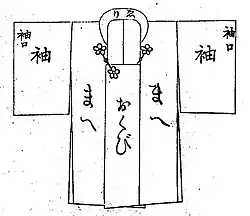 えり
袖口
袖
袖
袖口
まへ
おくび
まへ